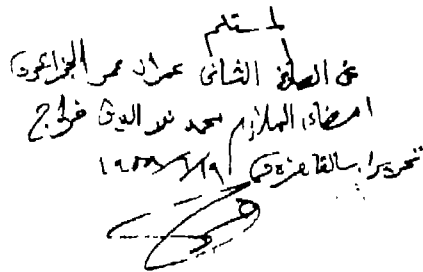 المستلم
عن الطرف الثانى عمران عمر الجزائرى
امضاء الملازم محمد نور الدين فراج
تحريرا بالقاهرة فى ١٩٥٨/٦/١٩